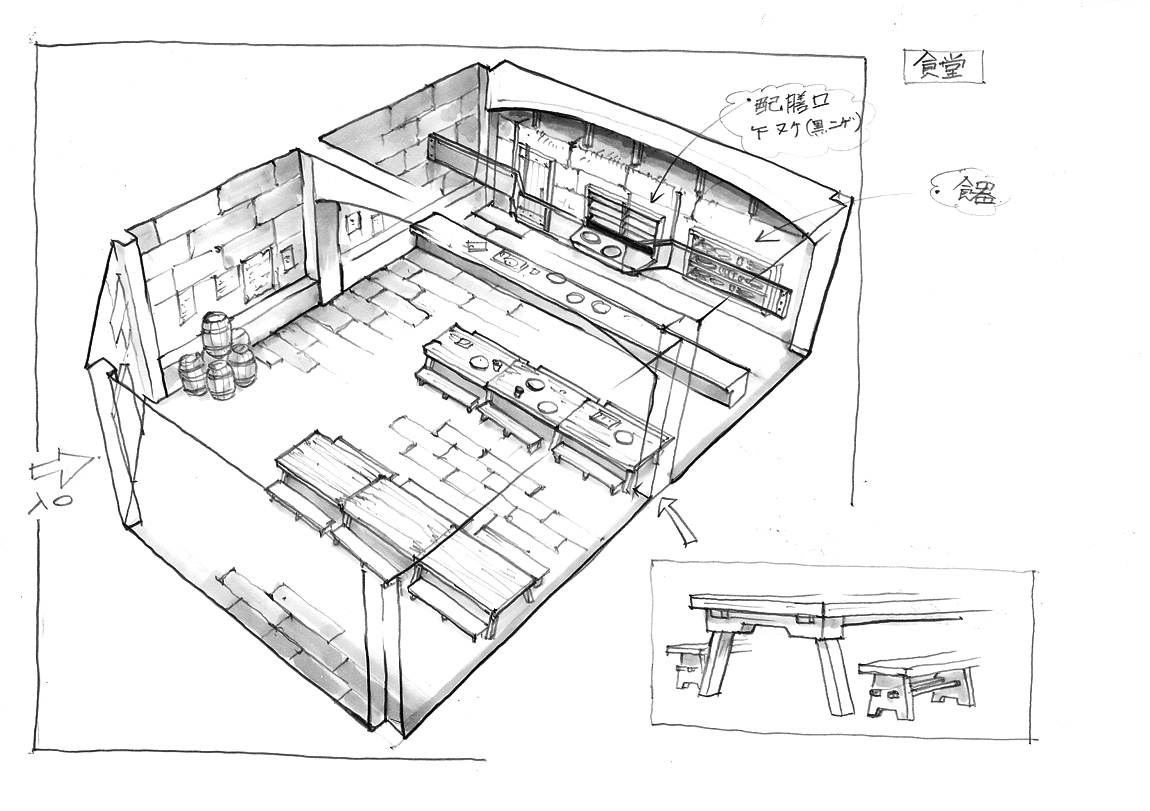 食堂
・配膳口
下ヌケ(黒ニゲ)
・食器
入口